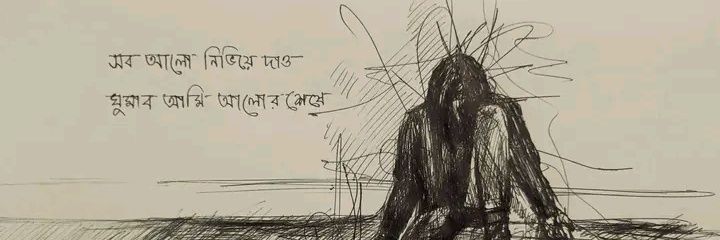 সব আলো নিভিয়ে দাও
ঘুমাব আমি আলোর শেষে